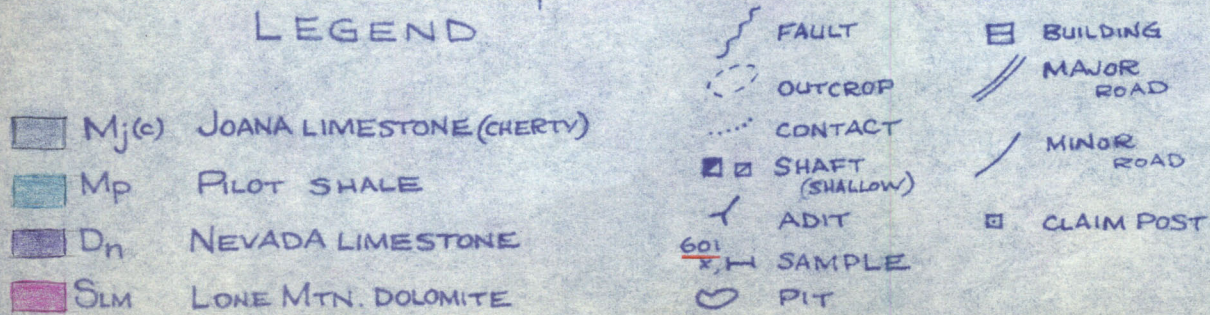 LEGEND
Mj(c) JOANA LIMESTONE (CHERTY)
Mp PILOT SHALE
Dn NEVADA LIMESTONE
SLM LONE MTN. DOLOMITE
FAULT
OUTCROP
CONTACT
SHAFT
(SHALLOW)
ADIT
601 x, SAMPLE
PIT
BUILDING
MAJOR
ROAD
MINOR
ROAD
CLAIM POST